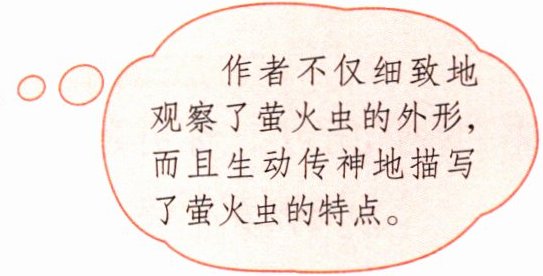 作者不仅细致地
观察了萤火虫的外形，
而且生动传神地描写
了萤火虫的特点。